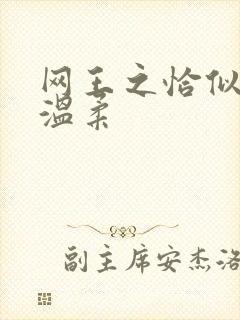 网王之恰似
温柔
副主席安杰洛